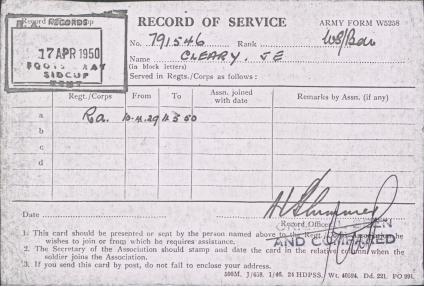 R.A. RECORDS
17 APR 1950
FOOTS CRAY
SIDCUP
KENT
RECORD OF SERVICE
ARMY FORM W5258
No. 791546 Rank WS/Bdr
Name CLEARY. JE
(in block letters)
Served in Regts./Corps as follows:
Regt./Corps From To Assn. joined with date Remarks by Assn. (if any)
a Ra.
b
c
d
Date
Record Office
AND COMPARED
1. This card should be presented or sent by the person named above to the Regt. Association he
wishes to join or from which he requires assistance.
2. The Secretary of the Association should stamp and date the card in the relative column when the
soldier joins the Association.
3. If you send this card by post, do not fail to enclose your address.